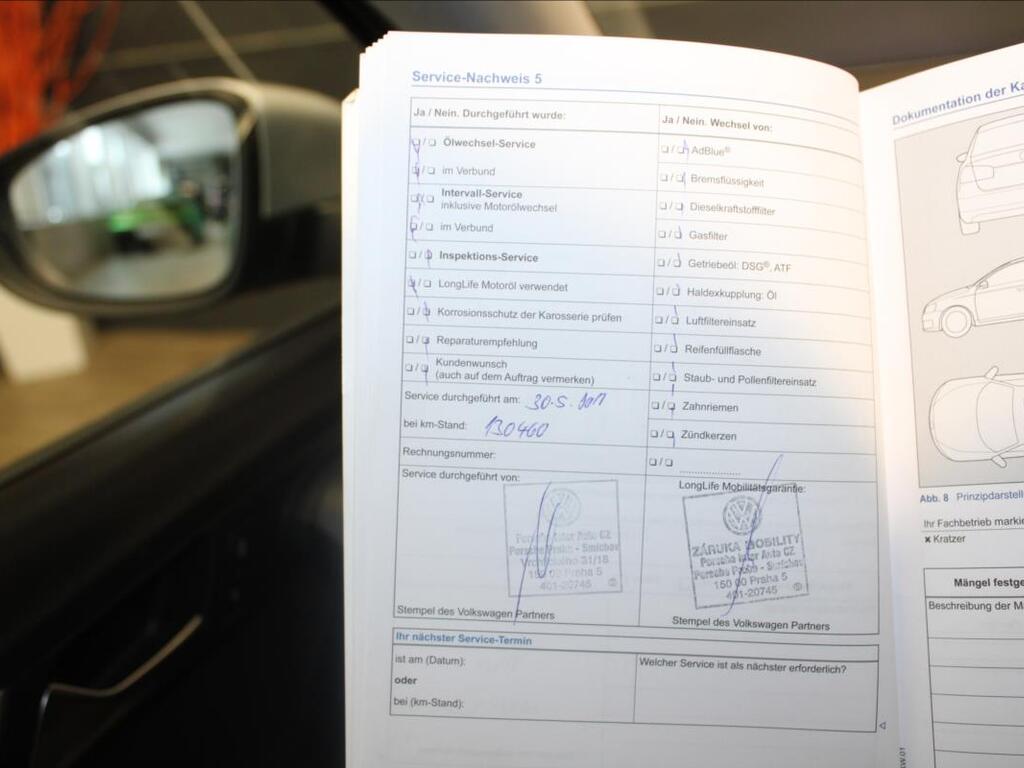 Service-Nachweis 5
Ja / Nein. Durchgeführt wurde:
❏/❏ Ölwechsel-Service
❏/❏ im Verbund
❏/❏ Intervall-Service
inklusive Motorölwechsel
❏/❏ im Verbund
❏/❏ Inspektions-Service
❏/❏ LongLife Motoröl verwendet
❏/❏ Korrosionsschutz der Karosserie prüfen
❏/❏ Reparaturempfehlung
❏/❏ Kundenwunsch
(auch auf dem Auftrag vermerken)
Service durchgeführt am: 30.5.
bei km-Stand: 130460
Rechnungsnummer:
Service durchgeführt von:
Porsche Inter Auto CZ
Porsche Praha - Smíchov
31/18
150 00 Praha 5
401-20745
Stempel des Volkswagen Partners
Ja / Nein. Wechsel von:
❏/❏ AdBlue®
❏/❏ Bremsflüssigkeit
❏/❏ Dieselkraftstofffilter
❏/❏ Gasfilter
❏/❏ Getriebeöl: DSG®, ATF
❏/❏ Haldexkupplung: Öl
❏/❏ Luftfiltereinsatz
❏/❏ Reifenfüllflasche
❏/❏ Staub- und Pollenfiltereinsatz
❏/❏ Zahnriemen
❏/❏ Zündkerzen
❏/❏ ....................
LongLife Mobilitätsgarantie:
ZÁRUKA MOBILITY
Porsche Inter Auto CZ
Porsche Praha - Smíchov
150 00 Praha 5
401-20745
Stempel des Volkswagen Partners
Ihr nächster Service-Termin
ist am (Datum):
oder
bei (km-Stand):
Welcher Service ist als nächster erforderlich?
Dokumentation der Ka
Abb. 8 Prinzipdarstell
Ihr Fachbetrieb markie
✖ Kratzer
Mängel festge
Beschreibung der Mä